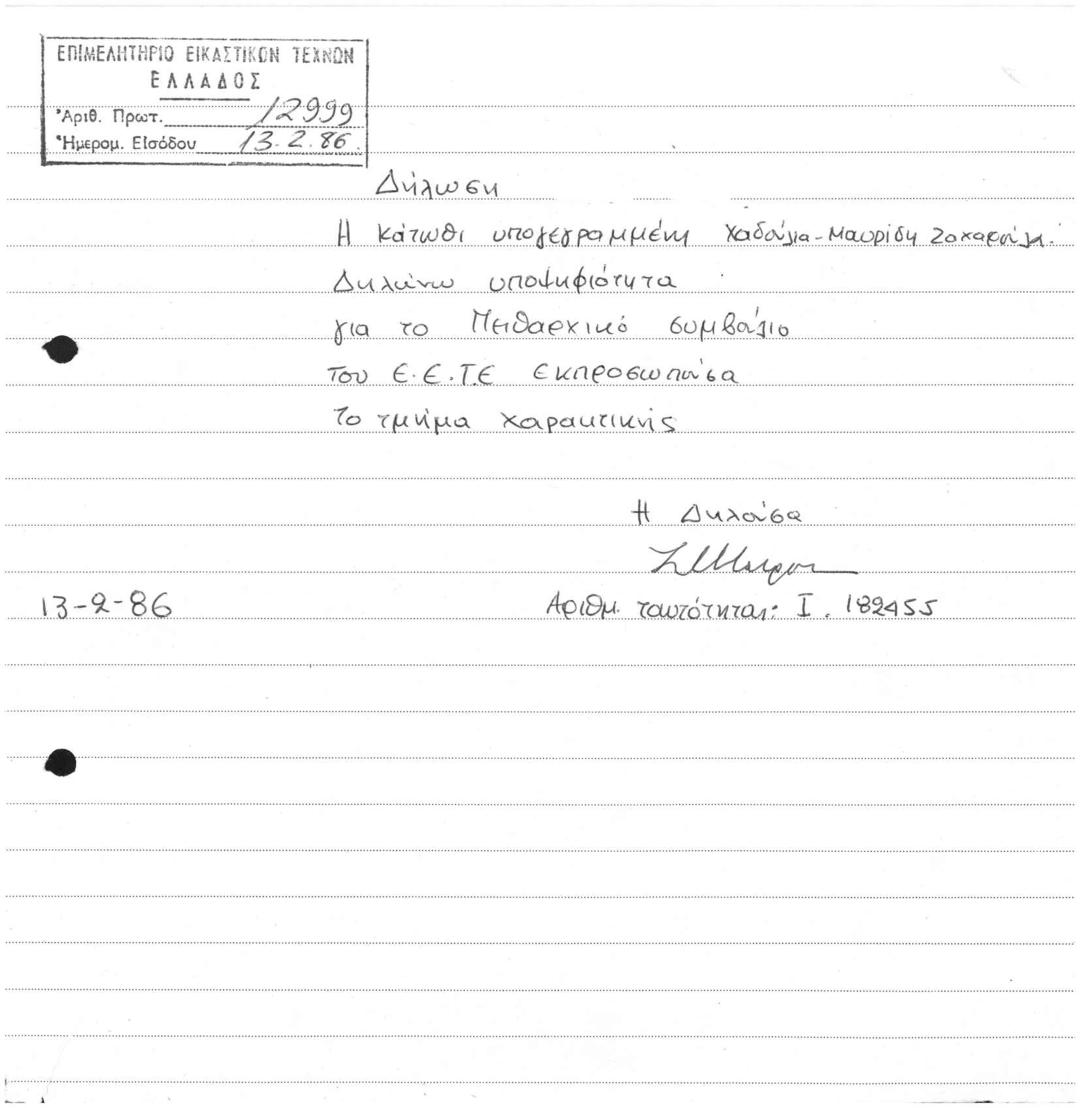 ΕΠΙΜΕΛΗΤΗΡΙΟ ΕΙΚΑΣΤΙΚΩΝ ΤΕΧΝΩΝ
ΕΛΛΑΔΟΣ
Ἀριθ. Πρωτ. 12999
Ἡμερομ. Εἰσόδου 13.2.86.
Δήλωση
Η κάτωθι υπογεγραμμένη Χαδούλια-Μαυρίδη Ζαχαρούλα.
Δηλώνω υποψηφιότητα
για το Πειθαρχικό συμβούλιο
του Ε.Ε.Τ.Ε εκπροσωπούσα
το τμήμα χαρακτικής
Η Δηλούσα
13-2-86 Αριθμ. ταυτότητας: Ι. 182455